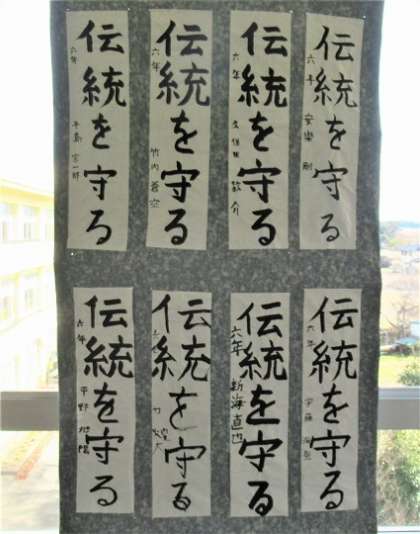 伝統を守る
六年 安樂 剛
伝統を守る
六年 久保田 毅介
伝統を守る
六年 竹内 蒼空
伝統を守る
六年
伝統を守る
六年
伝統を守る
六年 新海直也
伝統を守る
伝統を守る
六年 平野